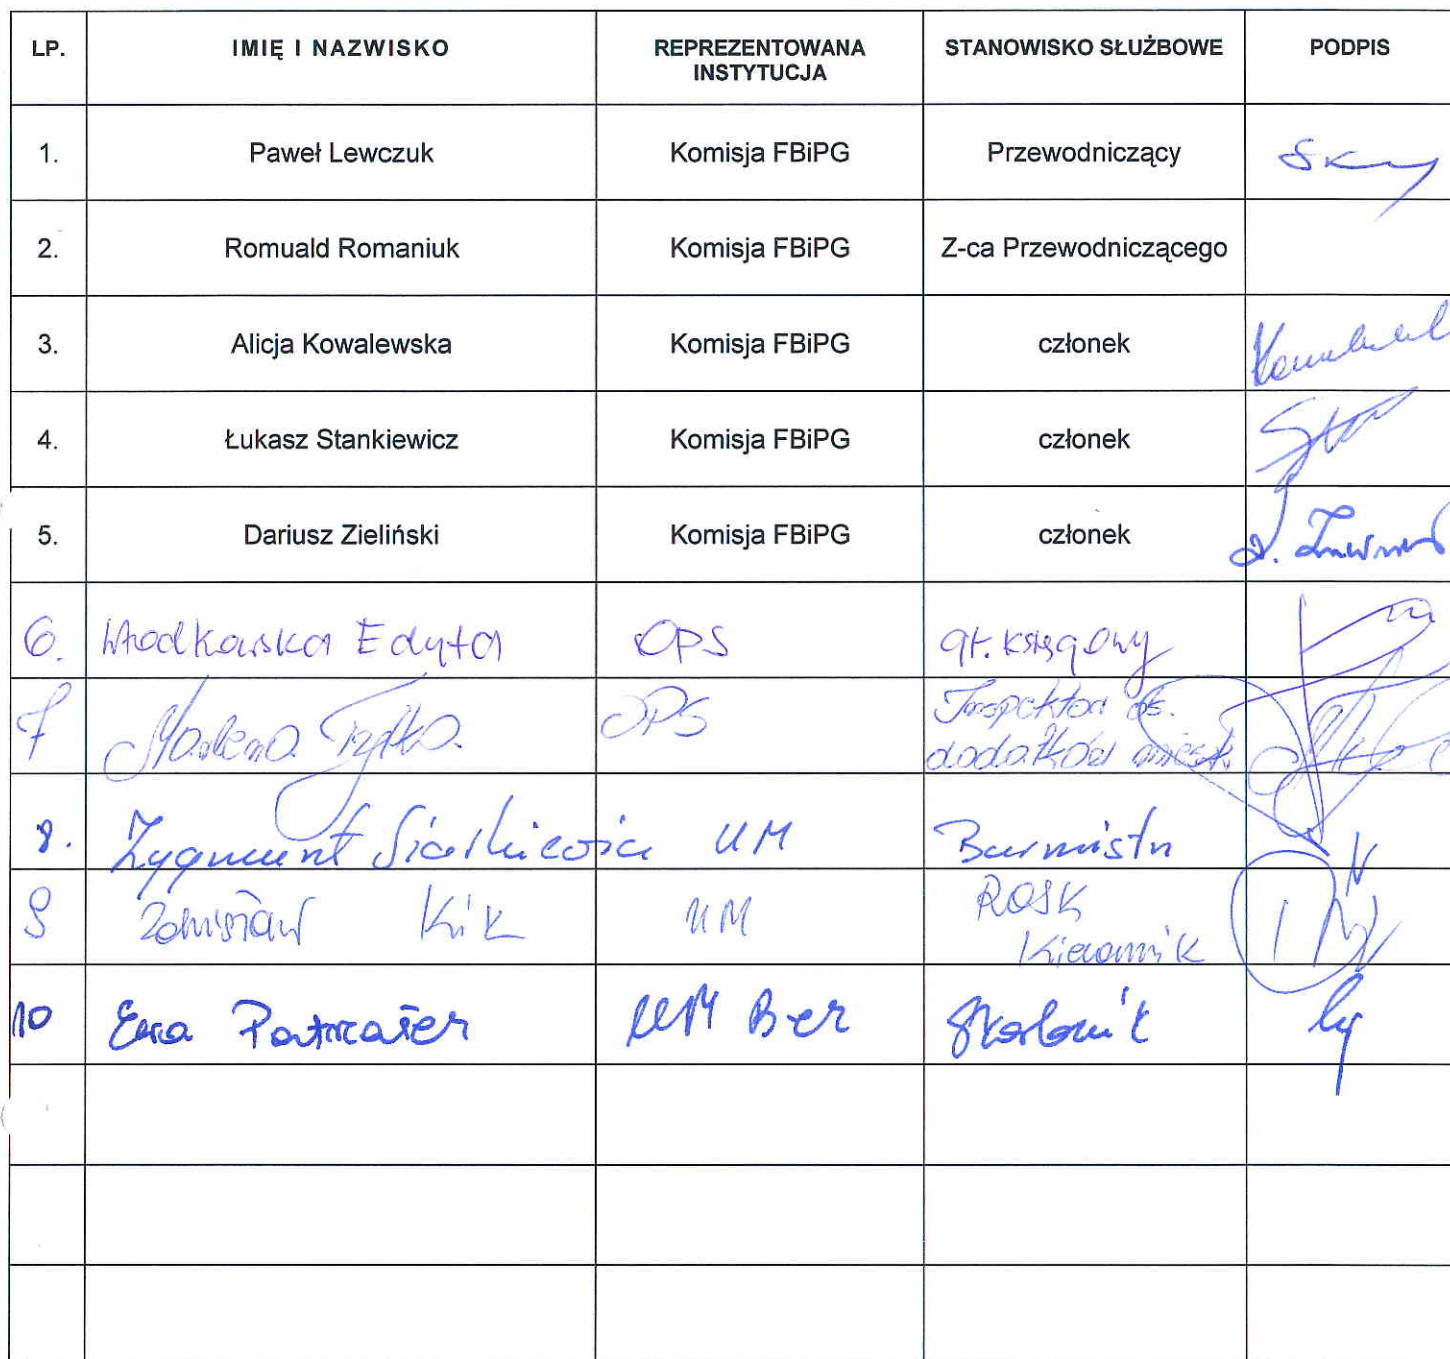 LP. IMIĘ I NAZWISKO REPREZENTOWANA INSTYTUCJA STANOWISKO SŁUŻBOWE PODPIS
1. Paweł Lewczuk Komisja FBiPG Przewodniczący
2. Romuald Romaniuk Komisja FBiPG Z-ca Przewodniczącego
3. Alicja Kowalewska Komisja FBiPG członek
4. Łukasz Stankiewicz Komisja FBiPG członek
5. Dariusz Zieliński Komisja FBiPG członek
6. Edyta OPS gł. księgowy
7 Marlena OPS Inspektor ds.
dodatków mieszk.
8. Zygmunt UM Burmistrz
9 Kik UM
Kierownik
10 Ewa UM Skarbnik